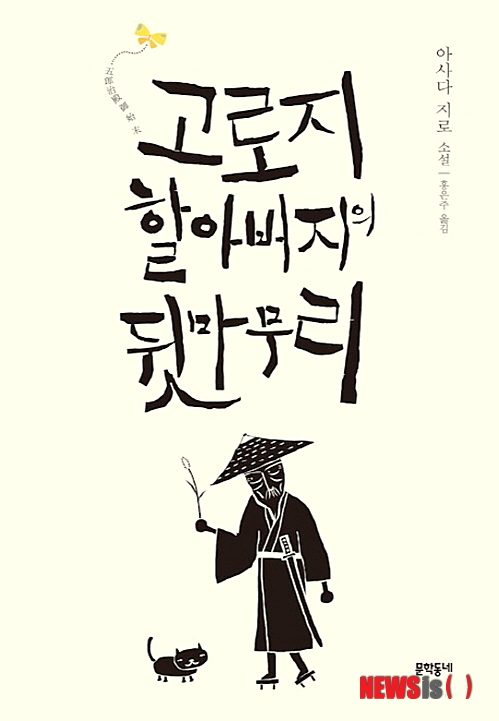 五郎治殿御始末
고로지
할아버지의
뒷마무리
아사다 지로 소설 | 홍은주 옮김
문학동네
NEWSis( )